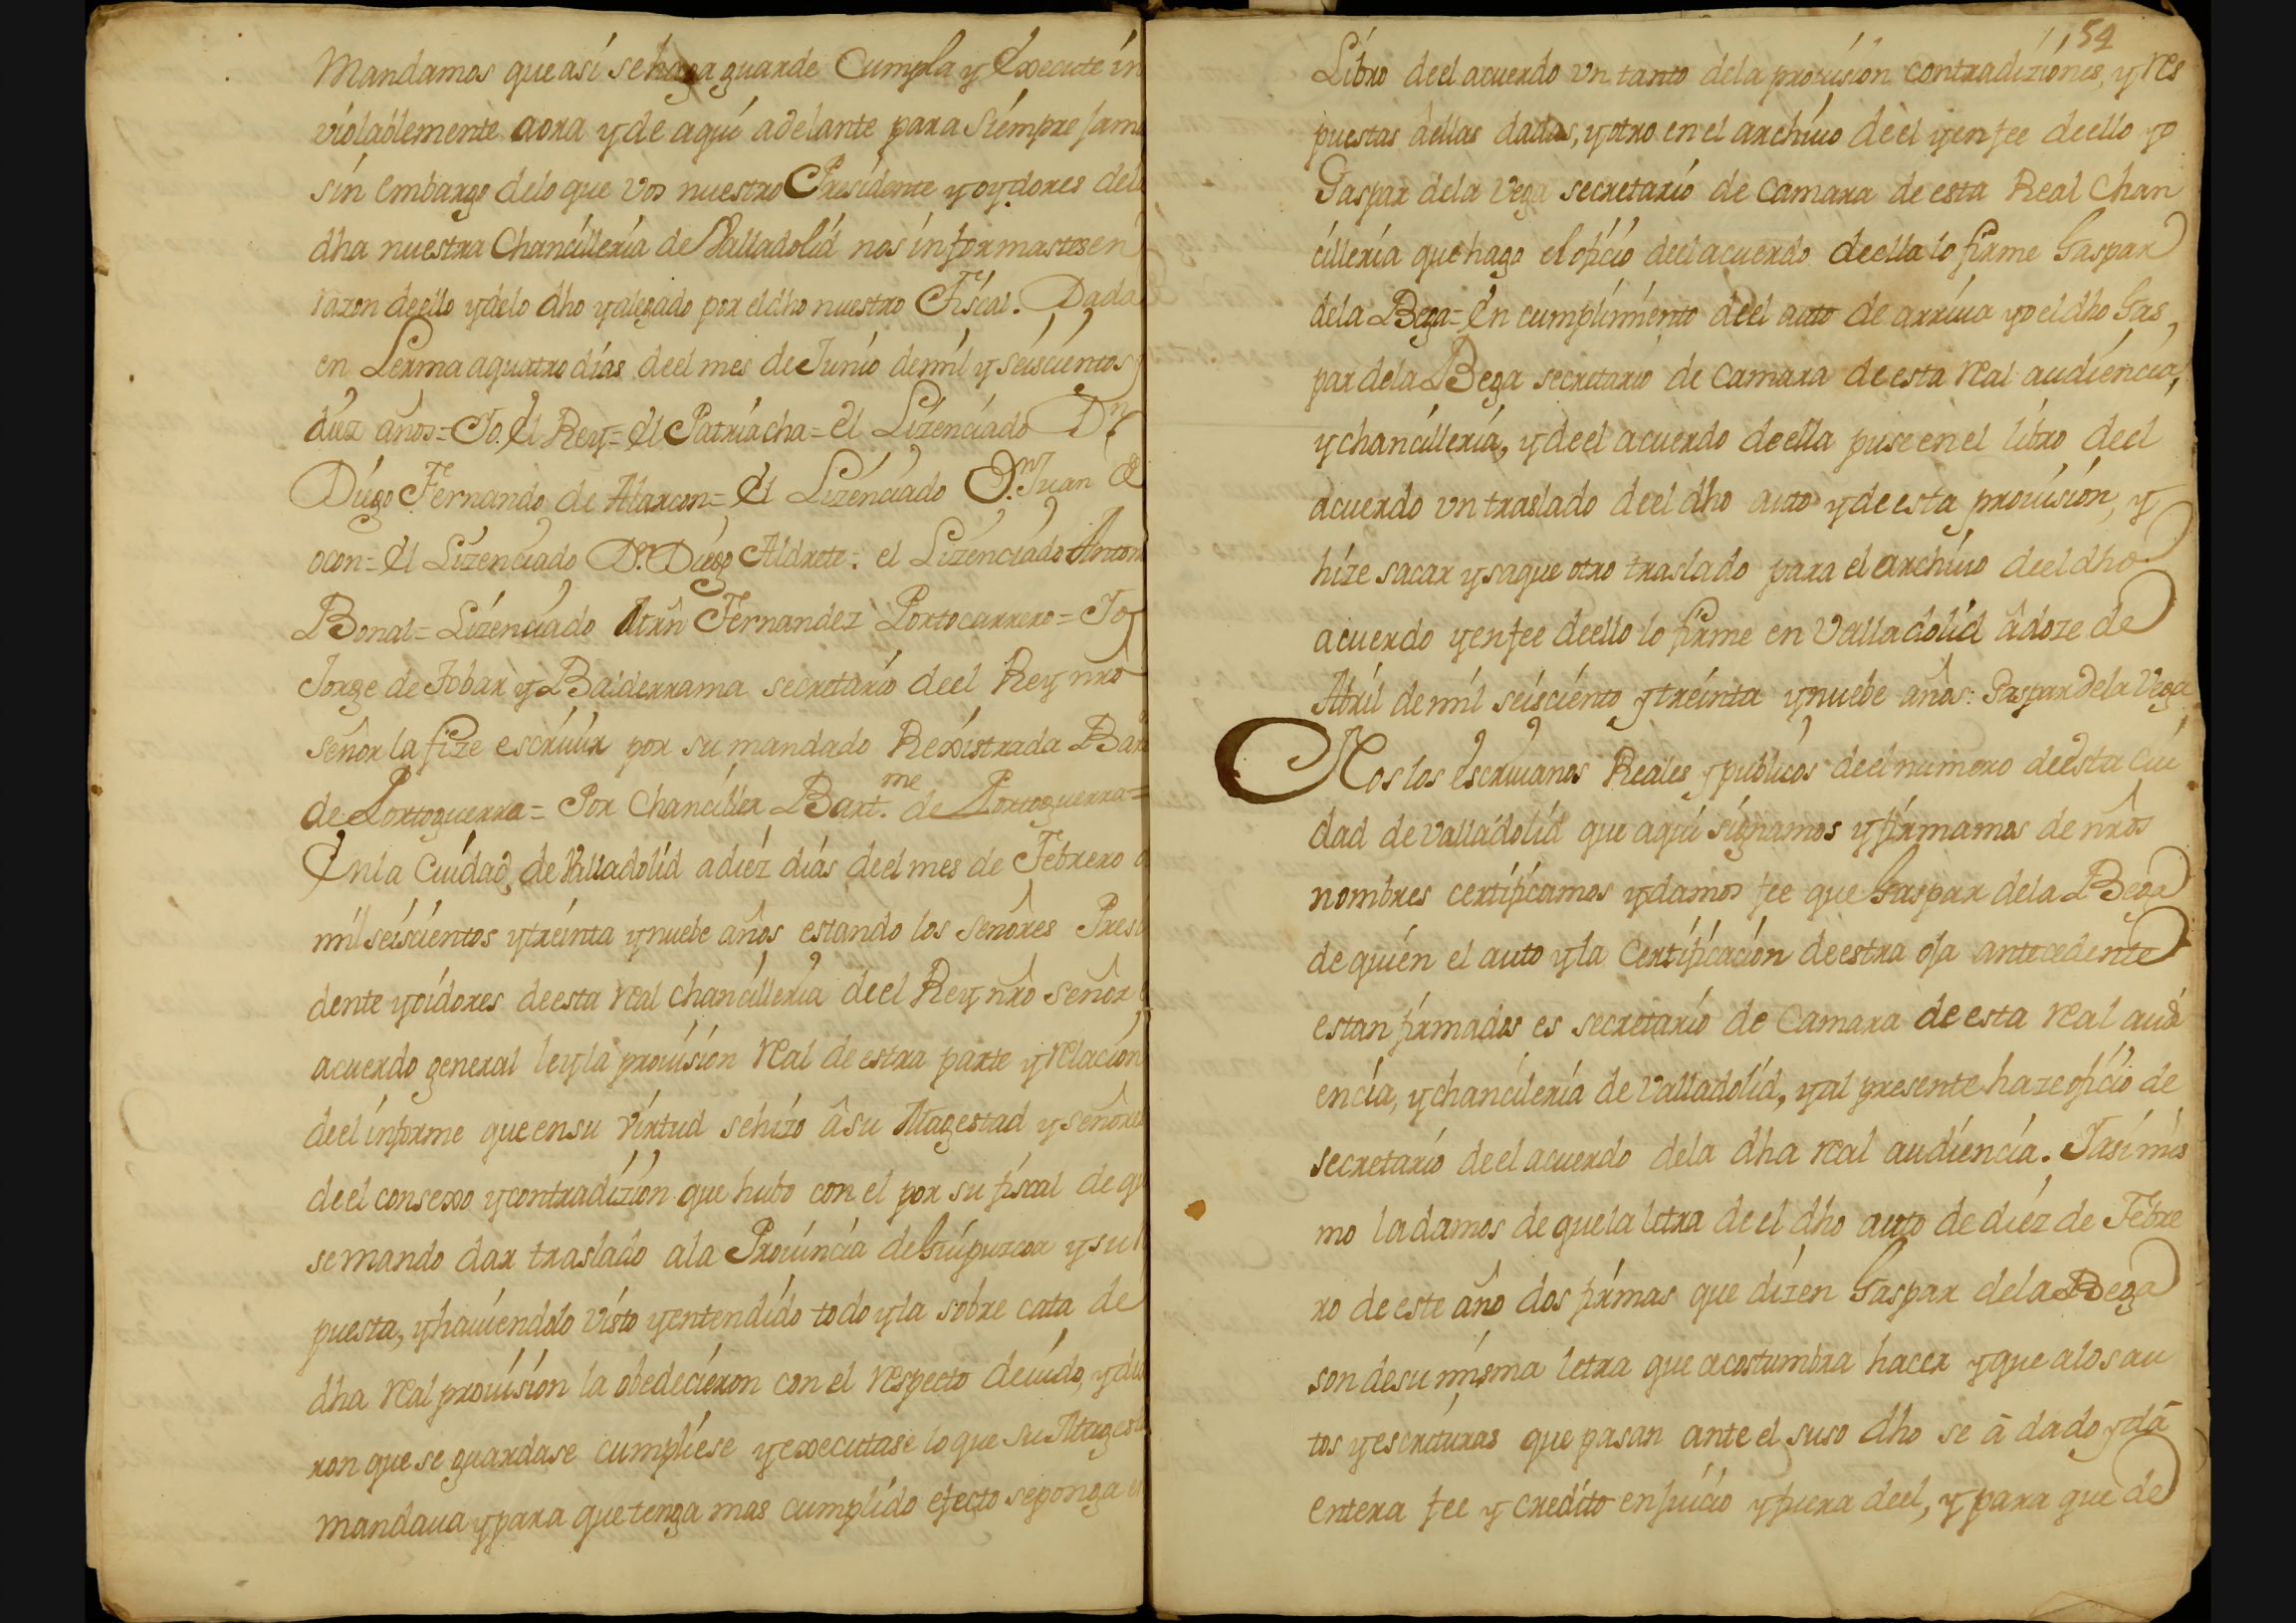 Mandamos que asi se haga guarde Cumpla y Execute in
violablemente aora y de aqui adelante para Siempre Jama
sin embargo delo que vos nuestro Presidente y oydores dela
dha nuestra Chancilleria de Valladolid nos informastes en
razon deello ydelo dho yalegado por eldho nuestro Fiscal. Dada
en Lerma aquatro dias deel mes de Junio demil y seiscientos y
diez años = Yo. El Rey = El Patriacha = El Lizenciado Dn
Diego Fernando de Alarcon = El Lizenciado D.n Juan de
ocon = El Lizenciado Dn. Diego Aldrete: el Lizenciado Anton
Bonal = Lizenciado Mrñ Fernandez Portocarrero = Yo
Jorge de Tobar y Balderrama secretario deel Rey nrõ
señor la fize escriuir por su mandado Rexistrada Bar
de Portoguerra = Por Chanciller Bart.me de Portoguerra =
Enla Ciudad de Valladolid a diez dias deel mes de Febrero d
mil seiscientos ytreinta ynuebe años estando los señores Presi
dente yoidores deesta real chancilleria deel Rey nrõ señor
acuerdo general ley la prouision real de estra parte y relacion
deel informe que ensu virtud sehizo âsu Magestad y señores
deel consexo ycontradizion que hubo con el por su fiscal de qu
se mando dar traslado ala Prouincia de Guipuzcoa y su
puesta, yhauiendolo visto yentendido todo yla sobre cata de
dha real prouision la obedecieron con el respecto deuido, y dix
ron que se guardase cumpliese yexecutase loque su Magest
mandaua ypara quetenga mas cumplido efecto seponga en
154
Libro deel acuerdo vn tanto dela prouision contradiziones, y res
puestas âellas dadas, yotro en el archiuo deel yenfee deello yo
Gaspar dela Vega secretario de Camara de esta Real Chan
cilleria quehago el oficio deel acuerdo deella lo firme Gaspar
dela Bega = En cumplimiento deel auto de arriua yo eldho Gas
par dela Bega secretario de Camara deesta real audiencia,
ychancilleria, ydeel acuerdo deella puse en el libro deel
acuerdo vn traslado deel dho auto ydeesta prouision, y
hize sacar ysaque otro traslado para el archiuo deeldho
acuerdo yenfee deello lo firme en Valladolid âdoze de
Abril de mil seisciento ytreinta ynuebe años: Gaspar dela Vega
Nos los escriuanos Reales y publicos deel numero deesta Ciu
dad de Valladolid que aqui signamos yfirmamos de nrõs
nombres certificamos ydamos fee que Gaspar dela Bega
de quien el auto yla Certificacion deestra oja antecedente
estan firmados es secretario de Camara de esta real audi
encia, ychancileria de Valladolid, yal presente haze oficio de
secretario deel acuerdo dela dha real audiencia. Yasimis
mo ladamos de quela letra de el dho auto de diez de Febre
ro deeste año dos firmas que dizen Gaspar dela Bega
son desu misma letra que acostumbra hacer yque alos au
tos yescrituras que pasan ante el suso dho se â dado yda
entera fee y credito enjuicio yfuera deel, ypara que de